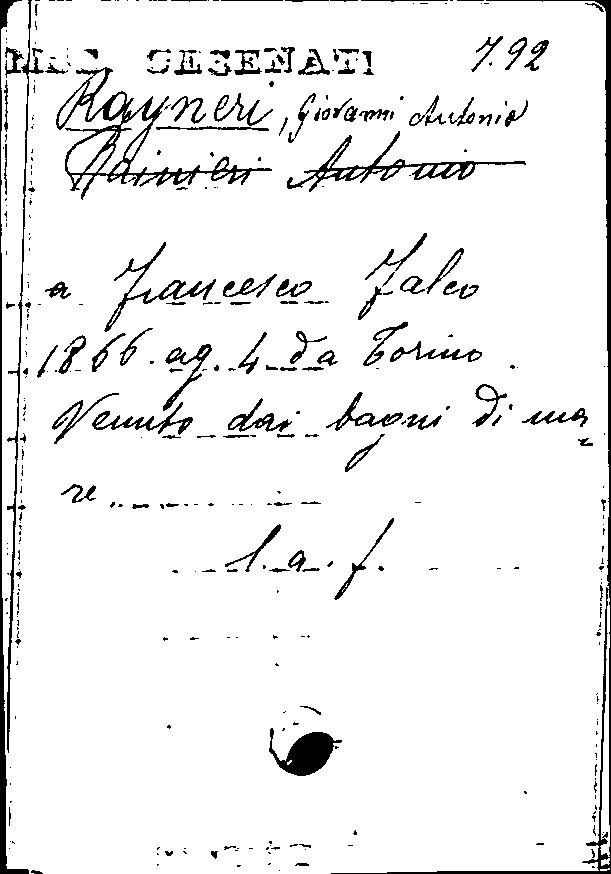 MSS. CESENATI 7.92
Rayneri, Giovanni Antonio
Rainieri Antonio
a Francesco Falco
1866. ag. 4. da Torino.
Venuto dai bagni di ma
re
l. a. f.